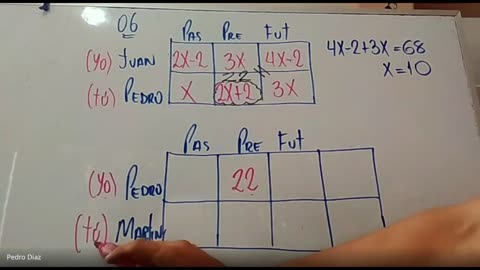 06
PAS PRE FUT
(YO) JUAN 2X-2 3X 4X-2
22
(tú) PEDRO X 2X+2 3X
4X-2+3X=68
X=10
PAS PRE FUT
(YO) PEDRO 22
(tú) MARTIN
Pedro Diaz